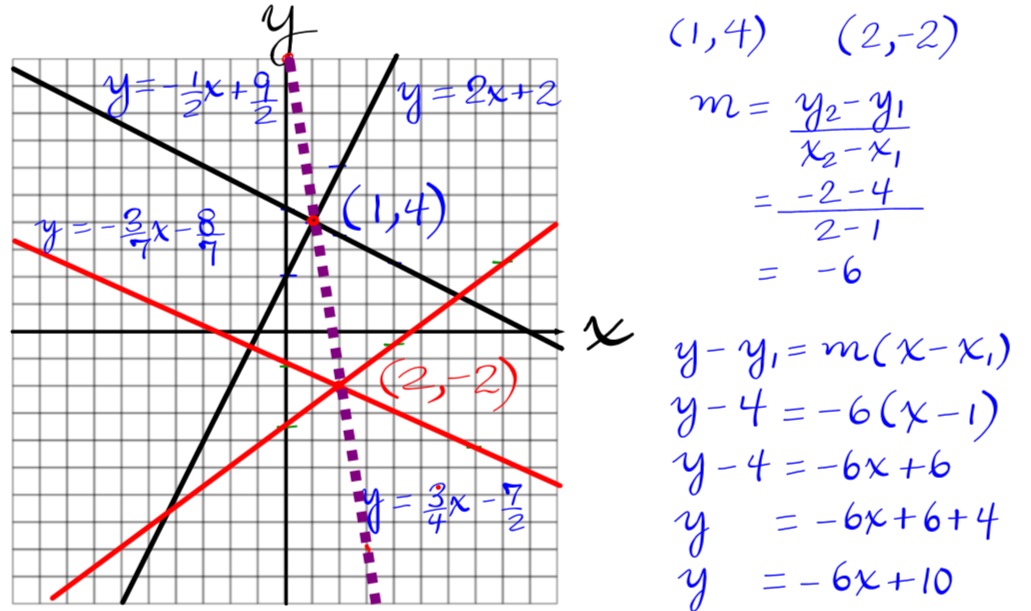 y
y = -1/2x + 9/2
y = 2x + 2
(1, 4)
y = -3/7x - 8/7
x
(2, -2)
y = 3/4x - 7/2
(1, 4) (2, -2)
m = y₂ - y₁
x₂ - x₁
= -2 - 4
2 - 1
= -6
y - y₁ = m(x - x₁)
y - 4 = -6(x - 1)
y - 4 = -6x + 6
y = -6x + 6 + 4
y = -6x + 10